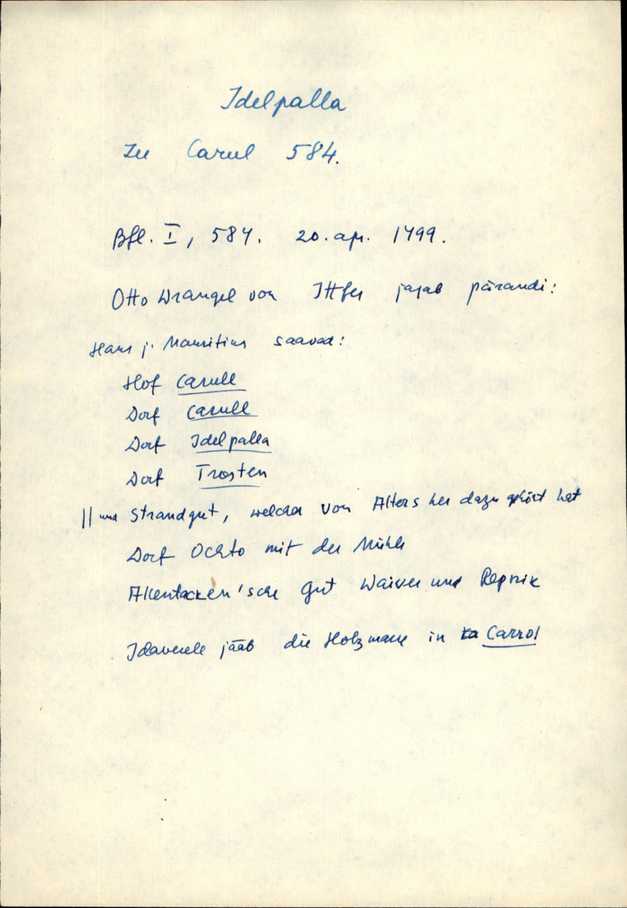 Idelpalla
Zu Carul 584.
Bfl. I, 584. 20. apr. 1499.
Otto Wrangel von Ittfer jagab pärandi:
Hans j. Mauritius saavad:
Hof Carull
Dorf Carull
Dorf Idelpalla
Dorf Trosten
|| und Strandgut, welches von Alters her dazu gehört hat
Dorf Ochto mit der Mühle
Altentacken'sche Gut Waiver und Repnik
Idaverele jääb die Holzmark in Carrol